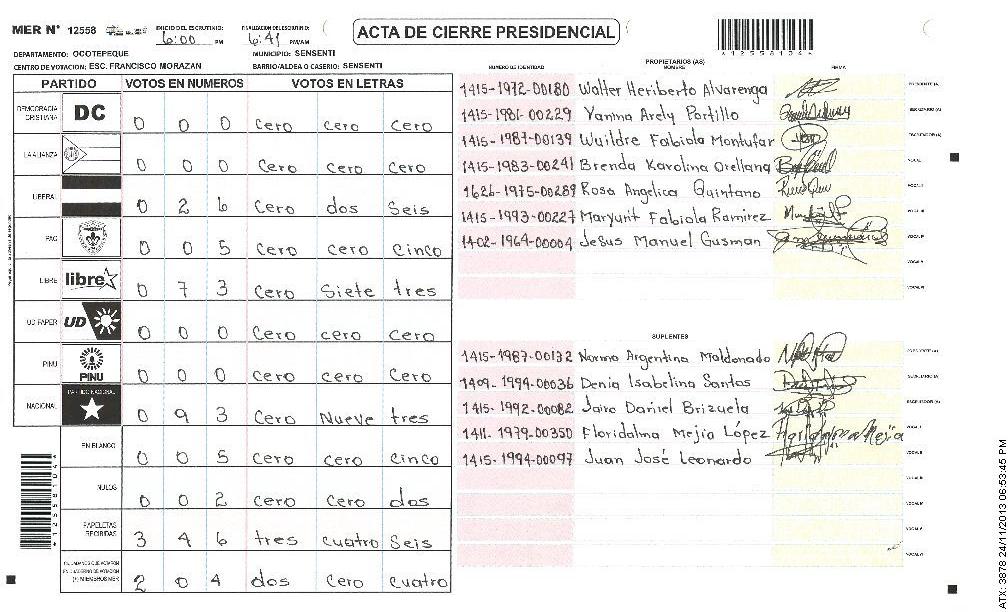 MER N° 12558
INICIO DEL ESCRUTINIO: 6:00 PM
FINALIZACION DEL ESCRUTINIO: 6:41 PM/AM
ACTA DE CIERRE PRESIDENCIAL
DEPARTAMENTO: OCOTEPEQUE
MUNICIPIO: SENSENTI
CENTRO DE VOTACION: ESC. FRANCISCO MORAZAN
BARRIO/ALDEA O CASERIO: SENSENTI
PARTIDO VOTOS EN NUMEROS VOTOS EN LETRAS
DEMOCRACIA CRISTIANA DC 0 0 0 cero cero cero
LA ALIANZA 0 0 0 cero cero cero
LIBERAL 0 2 6 cero dos seis
PAC 0 0 5 cero cero cinco
LIBRE libre 0 7 3 cero siete tres
UD FAPER UD 0 0 0 cero cero cero
PINU PINU 0 0 0 cero cero cero
NACIONAL PARTIDO NACIONAL 0 9 3 cero Nueve tres
EN BLANCO 0 0 5 cero cero cinco
NULOS 0 0 2 cero cero dos
PAPELETAS RECIBIDAS 3 4 6 tres cuatro seis
CIUDADANOS QUE VOTARON EN CUADERNO DE VOTACION (+) MIEMBROS MER 2 0 4 dos cero cuatro
PROPIETARIOS (AS)
NUMERO DE IDENTIDAD NOMBRE FIRMA
1415-1972-00180 Walter Heriberto Alvarenga
1415-1981-00229 Yanina Arely Portillo
1415-1987-00139 Wuildre Fabiola Montufar
1415-1983-00241 Brenda Karolina Orellana
1626-1975-00289 Rosa Angelica Quintano
1415-1993-00227 Maryurit Fabiola Ramirez
1402-1964-00004 Jesus Manuel Gusman
SUPLENTES
1415-1987-00132 Norma Argentina Maldonado
1409-1994-00036 Denia Isabelina Santos
1415-1992-00082 Jairo Daniel Brizuela
1411-1979-00350 Floridalma Mejia López
1415-1994-00097 Juan José Leonardo
ATX: 3878 24/11/2013 06:53:45 PM